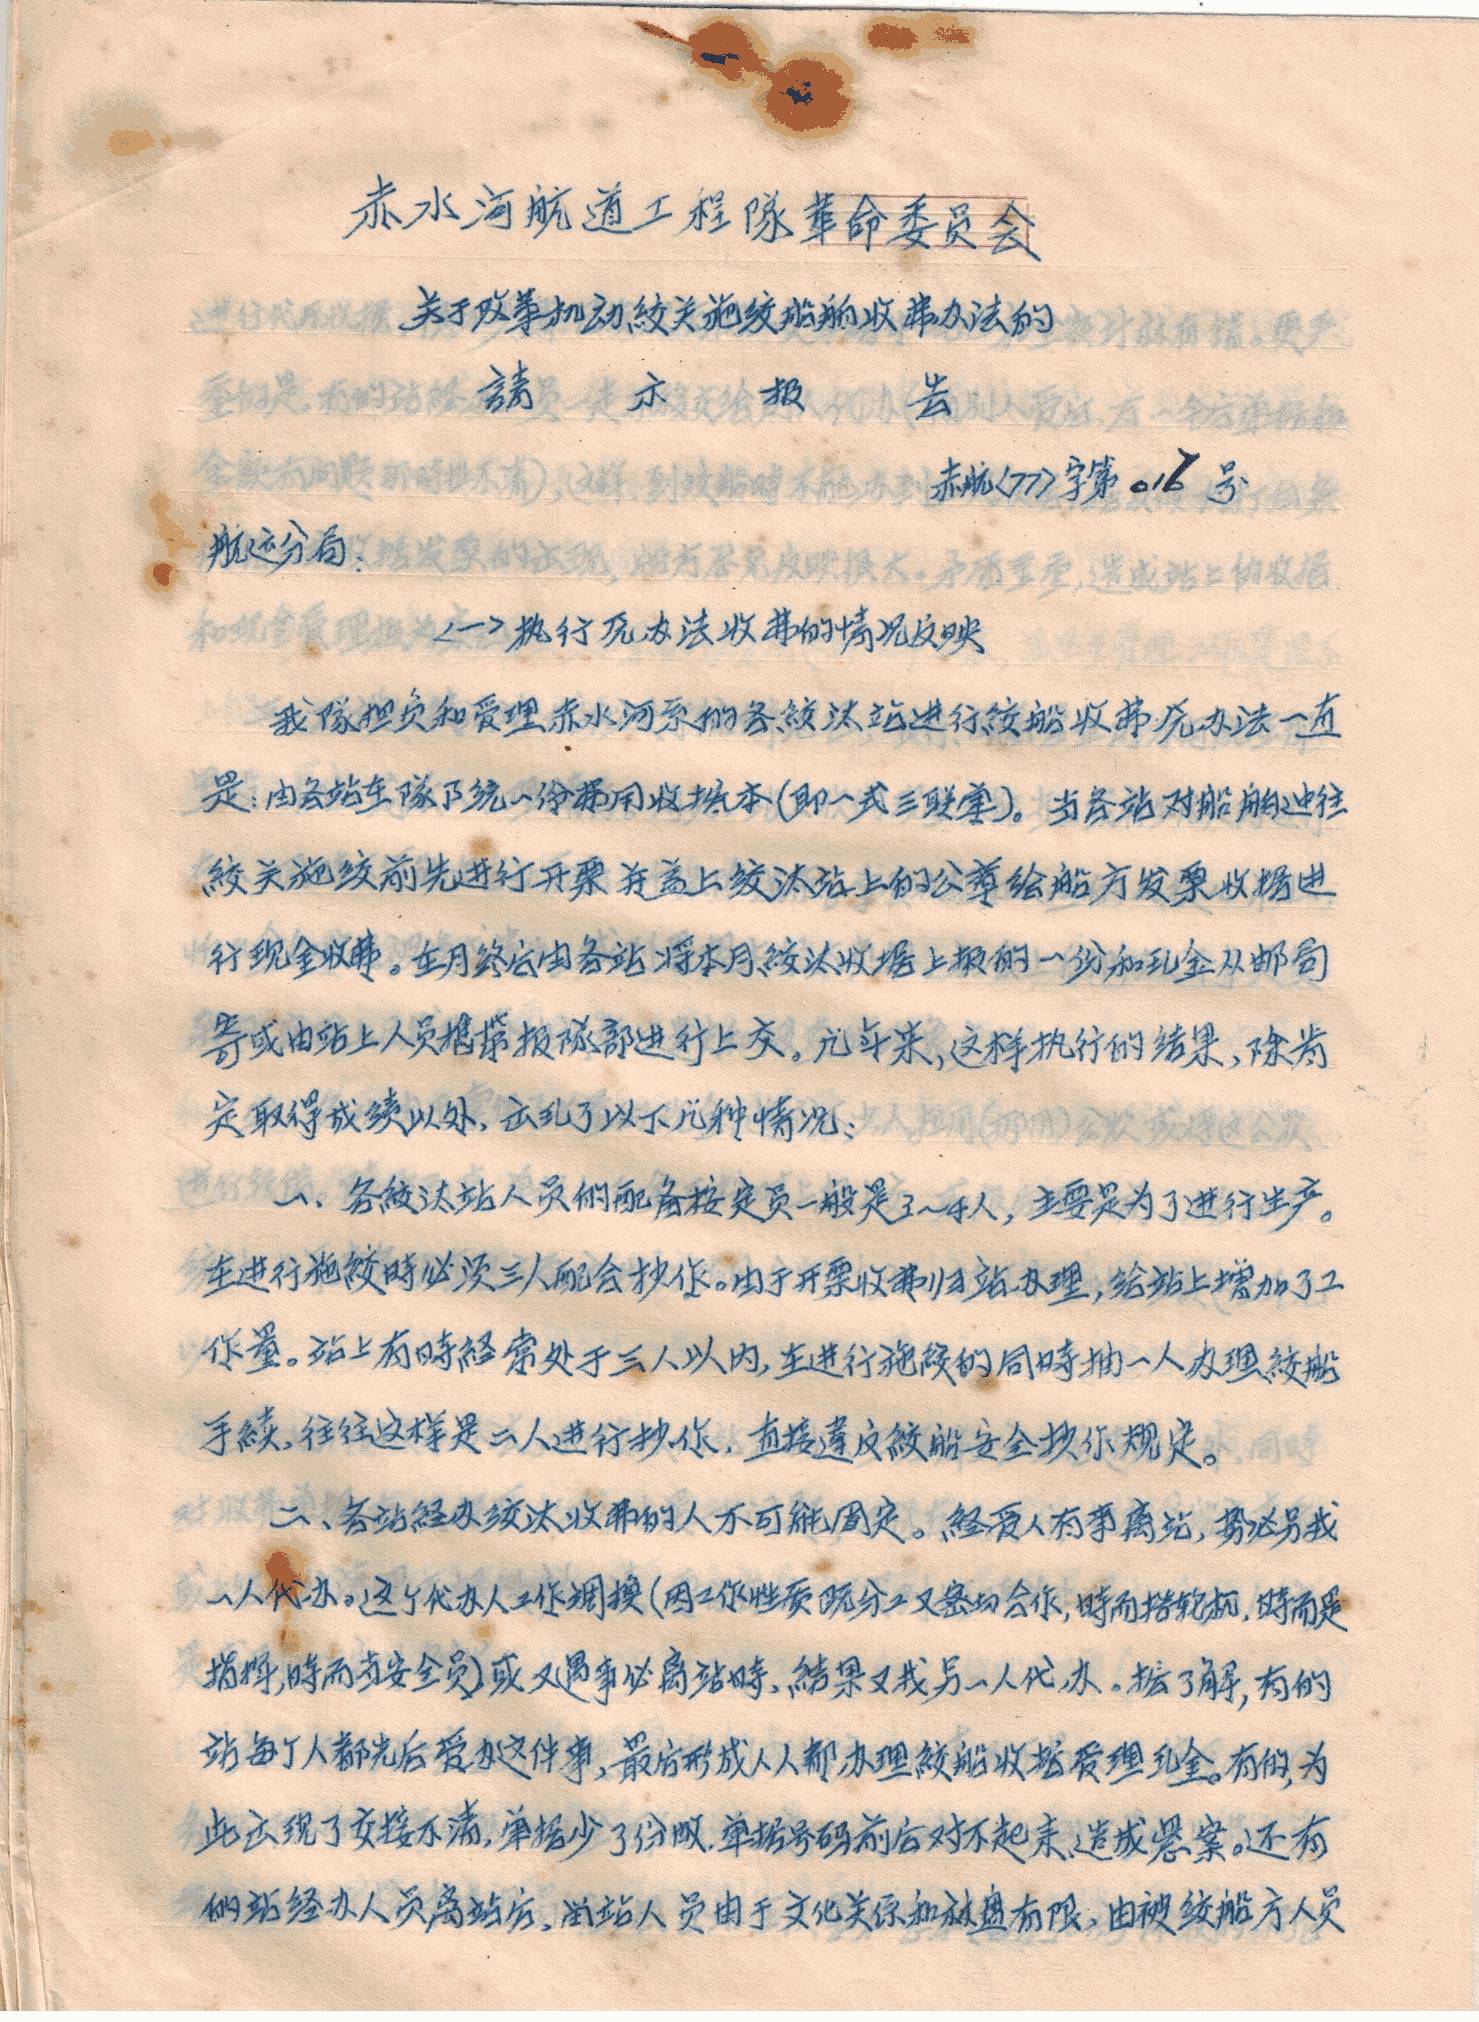 赤水河航道工程隊革命委员会
关于改革机动絞关施绞船舶收费办法的
請示报告
赤航〈77〉字第016号
航运分局：
〈一〉执行原办法收费的情况反映
我隊担负和受理赤水河系的各絞汰站进行絞船收费原办法一直
是：由各站在隊下统一份费用收据本（即一式三联单）。当各站对船舶过往
絞关施绞前先进行开票并盖上绞汰站上的公章给船方发票收据进
行现金收费。在月终后由各站将本月絞汰收据上报的一份和现金从邮局
寄或由站上人员携带报隊部进行上交。几年来，这样执行的结果，除肯
定取得成绩以外，出现了以下几种情况：
一、各絞汰站人员的配备按定员一般是3～4人，主要是为了进行生产。
在进行施絞時必须三人配合抄作。由于开票收费归站办理，给站上增加了工
作量。站上有時経常处于三人以内，在进行施绞的同時抽一人办理絞船
手续，往往这样是二人进行抄作，直接違反絞船安全抄作规定。
二、各站経办绞汰收费的人不可能固定。経受人有事离站，势必另找
一人代办。这个代办人工作調换（因工作性质既分工又密切合作，時而搭轮机，時而是
指挥，時而当安全员）或又遇事必离站時，結果又找另一人代办。据了解，有的
站每个人都先后受办这件事，最后形成人人都办理絞船收据受理现金。有的，为
此出现了交接不清，单据少了份数，单据号码前后对不起来，造成悬案。还有
的站经办人员离站后，由站人员由于文化关系和算盘有限，由被绞船方人员